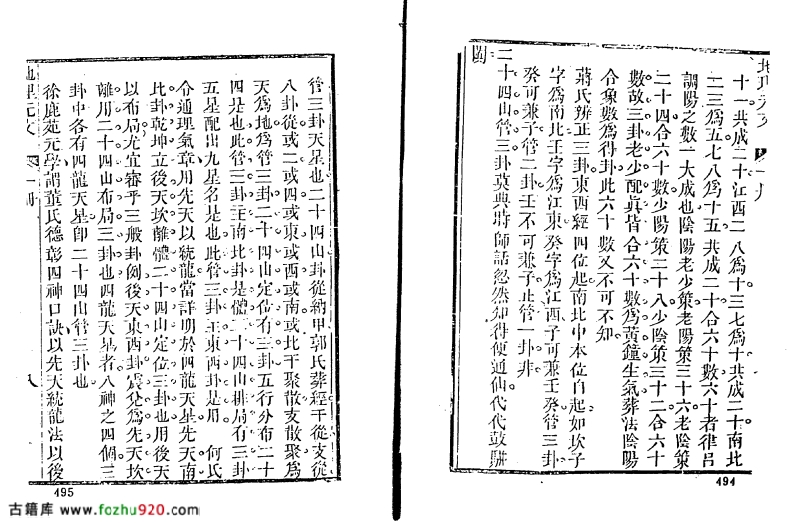 十一共成二十江西二八為十三七為十共成二十南北
二三為五七八為十五共成二十合六十數六十者律呂
調陽之數一大成也陰陽老少策老陽策三十六老陰策
二十四合六十數少陽策二十八少陰策三十二合六十
數故三卦老少配眞皆合六十數為黃鐘生氣葬法陰陽
令象數為得卦此六十數又不可不知
蔣氏辨正三卦東西經四位起南北中本位自起如坎子
字為南北壬字為江東癸字為江西子可兼壬癸管三卦
癸可兼子管二卦壬不可兼子止管一卦非
二十四山管三卦莫與時師話忽然知得便通仙代代鼓駢
闐
494
管三卦天星也二十四山卦從納甲郭氏葬經干從支從
八卦從或二或四或東或西或南或北干聚散支散聚為
天為地為管三卦二十四山定位有三卦五行分布二十
四是也此管三卦主南北卦是體二十四山排局有三卦
五星配出九星名是也此管三卦主東西卦是用 何氏
令通理氣章用先天以統龍當詳明於四龍天星先天南
北卦乾坤立後天坎離體二十四山定位三卦也用後天
以布局尤宜審乎三般卦例後天東西卦震兌為先天坎
離用二十四山布局三卦也四龍天星者八神之四個三
卦中各有四龍天星即二十四山管三卦也
徐鹿苑元學謂董氏德彰四神口訣以先天統龍法以後
地理元文
一冊
八
495
古籍库 www.fozhu920.com